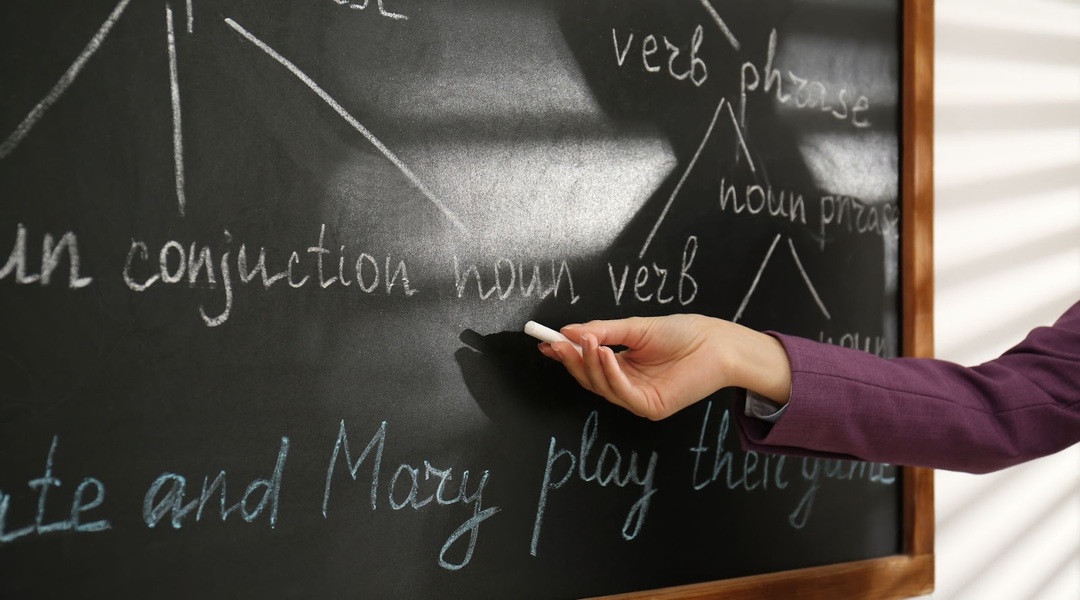 verb phrase
noun phrase
conjunction noun verb
noun
and Mary play their game